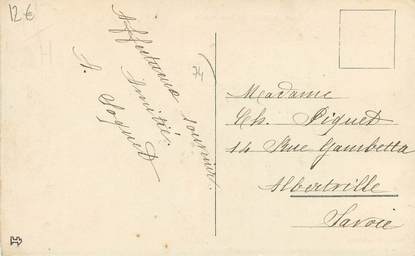 12€
74
Affectueux souvenir.
Amitié
S. Soquet
Madame
Ch. Piquet
14 Rue Gambetta
Albertville
Savoie